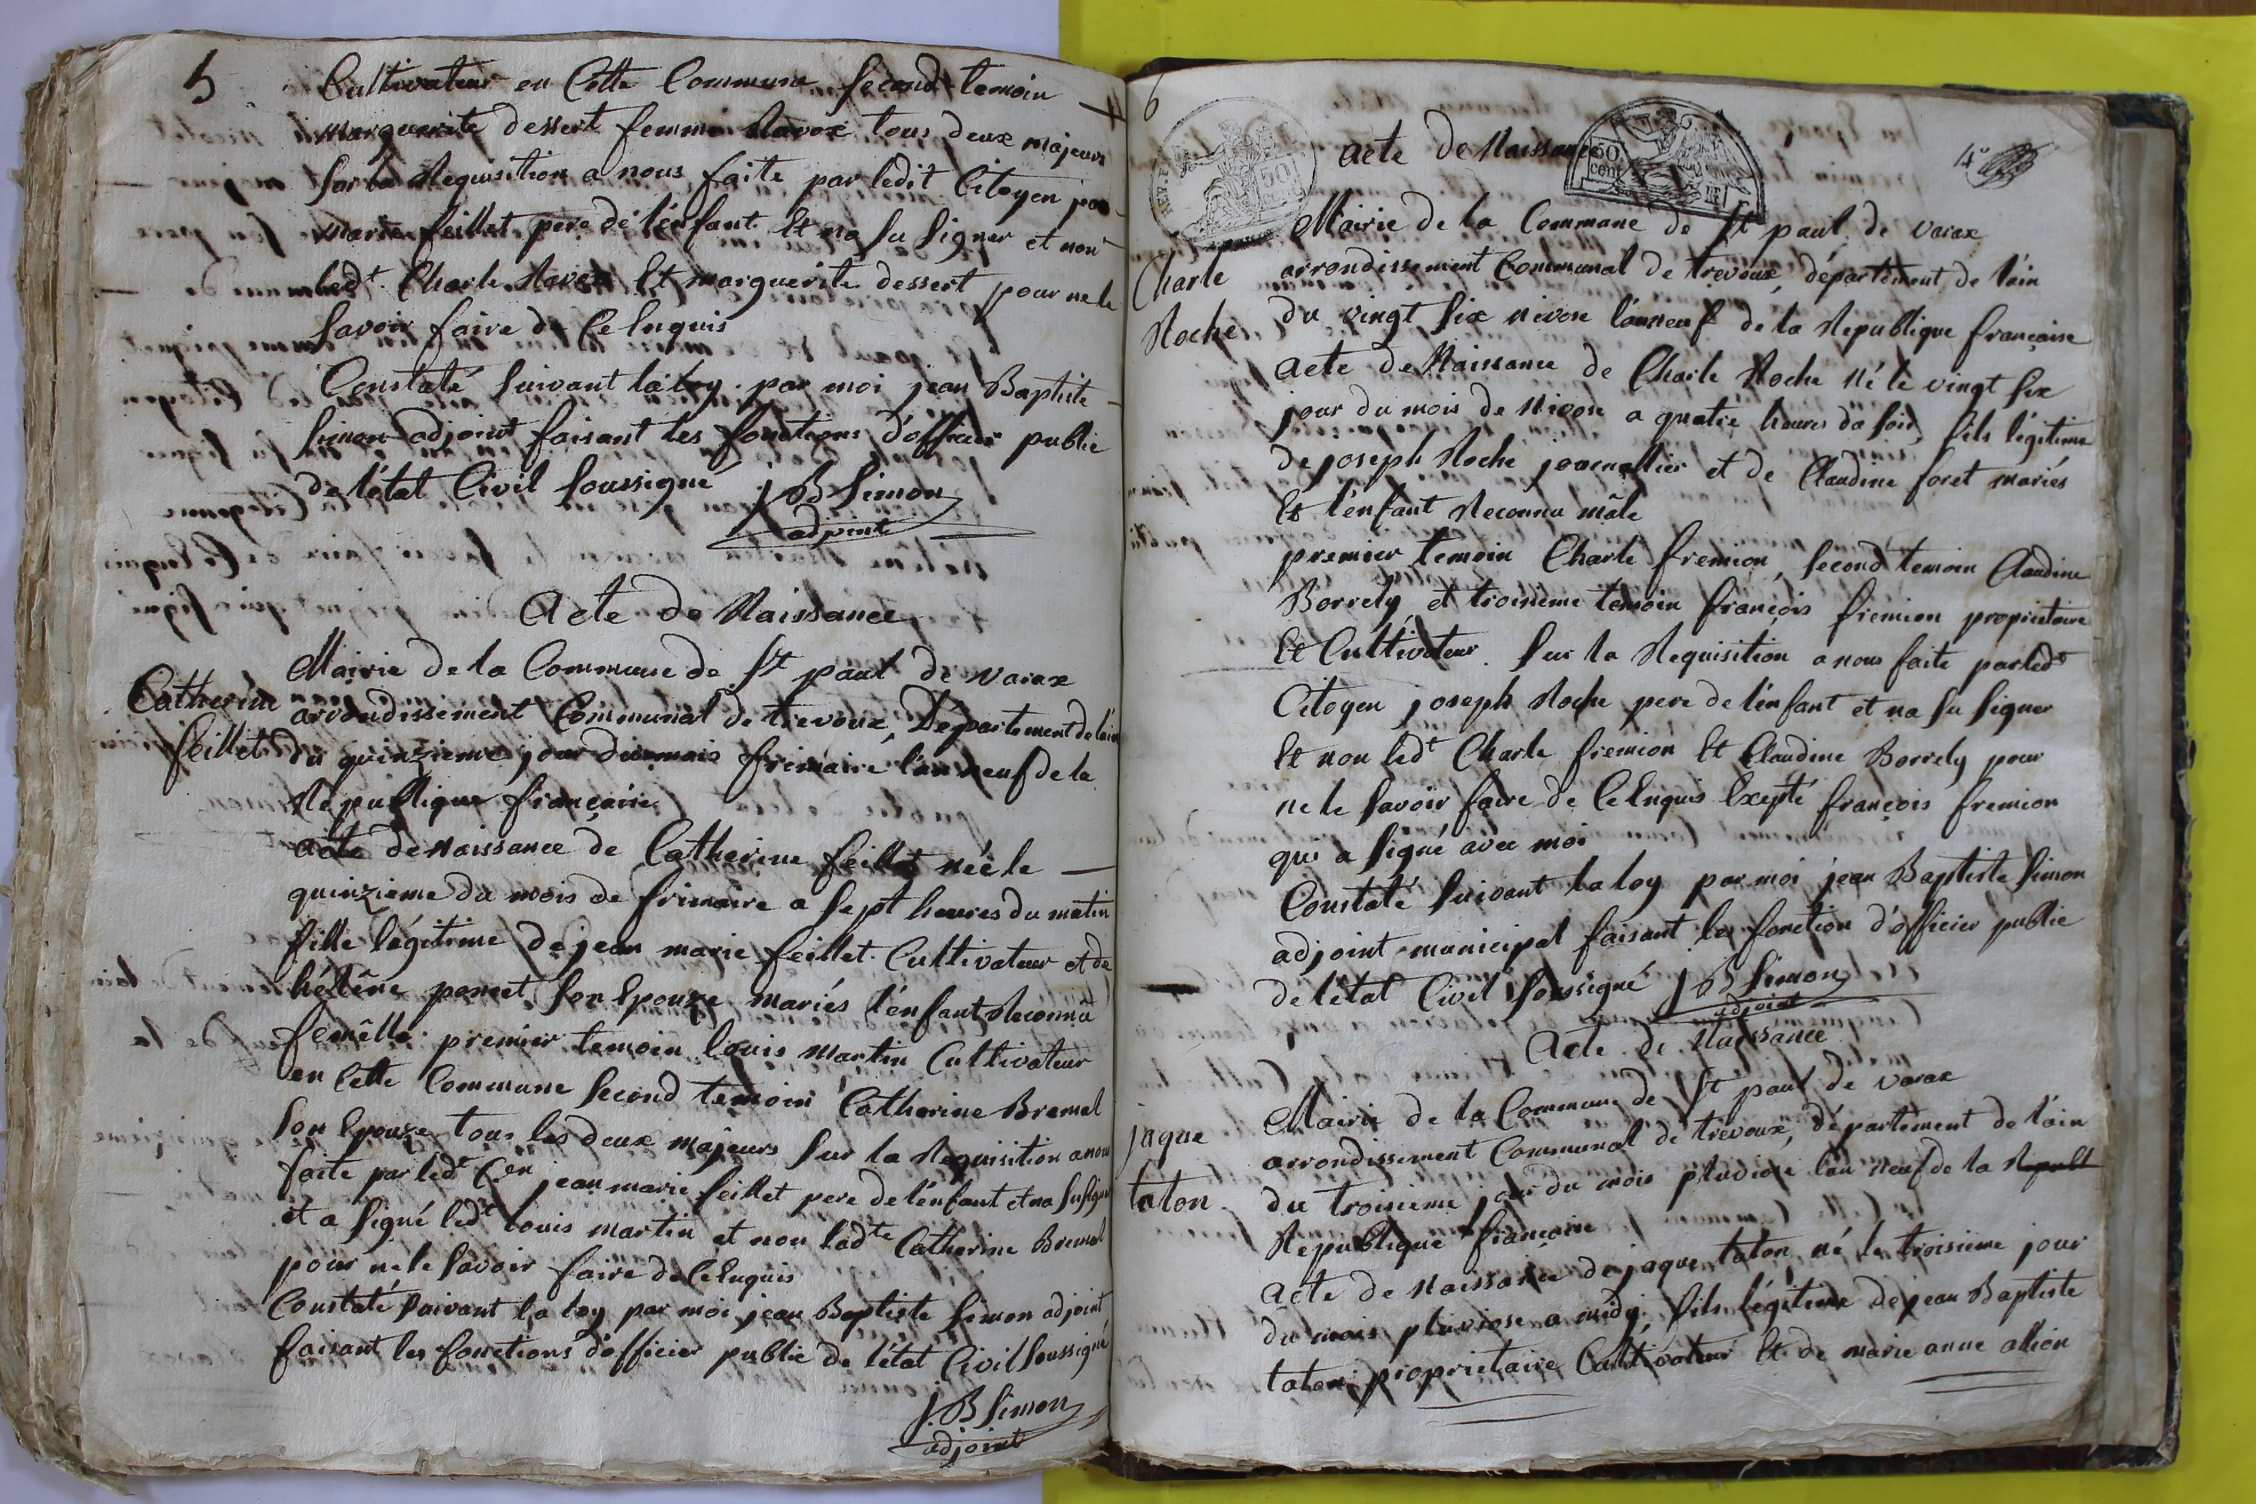 5
Cultivateur en Cette Commune Second temoin
marguerite dessert femme Navox tous deux majeurs
Sur la Requisition a nous faite par ledit Citoyen jean
marie feillet pere de l'enfant Et na Su Signer et non
ledt Charle Navox Et marguerite dessert pour ne le
Savoir faire de Ce Enquis
Constaté Suivant la loy par moi jean Baptiste
Simon adjoint faisant les fonctions d'officier public
de l'état Civil Soussigné J B Simon
adjoint
Acte de Naissance
Catherine
feillet
Mairie de la Commune de St paul de varax
arrondissement Communal de trevoux, Departement de l'ain
du quinzieme jour du mois frimaire l'an neuf de la
Republique française
acte de naissance de Catherine feillet née le
quinzieme du mois de frimaire a Sept heures du matin
fille légitime de jean marie feillet Cultivateur et de
hélène poncet Son Epouze mariés l'enfant Reconnu
femêlle premier temoin Louis Martin Cultivateur
en Cette Commune Second temoin Catherine Bremel
Son Epouze tous les deux majeurs Sur la Requisition a nous
faite par ledt Cen jean marie feillet pere de l'enfant et na Su Signer
et a Signé ledt Louis martin et non ladte Catherine Bremel
pour ne le Savoir faire de Ce Enquis
Constaté Suivant la loy par moi jean Baptiste Simon adjoint
faisant les fonctions d'officier public de l'état Civil Soussigné
J. B Simon
adjoint
6
acte de Naissance
50
cent
4e
Charle
Roche
Mairie de la Commune de St paul de varax
arrondissement Communal de trevoux, département de l'ain
du vingt Six nivose l'an neuf de la Republique française
acte de Naissance de Charle Roche Né le vingt Six
jour du mois de Nivose a quatre heures du Soir, fils légitime
de joseph Roche journallier et de Claudine foret mariés
Et l'enfant Reconnu mâle
premier temoin Charle fremion, Second temoin Claudine
Borrely et troisieme temoin françois fremion proprietaire
Et Cultivateur Sur la Requisition a nous faite par ledt
Citoyen joseph Roche pere de l'enfant et na Su Signer
Et non ledt Charle fremion Et Claudine Borrely pour
ne le Savoir faire de Ce Enquis Exepté françois fremion
qui a Signé avec moi
Constaté Suivant la loy par moi jean Baptiste Simon
adjoint municipal faisant les fonction d'officier public
de l'état Civil Soussigné J B Simon
adjoint
Acte de Naissance
jaque
taton
Mairie de la Commune de St paul de varax
arrondissement Communal de trevoux, département de l'ain
du troisieme jour du mois pluviose l'an neuf de la Republ
Republique française
acte de Naissance de jaque taton né le troisieme jour
du mois pluviose a midy, fils légitime de jean Baptiste
taton proprietaire Cultivateur Et de marie anne allion